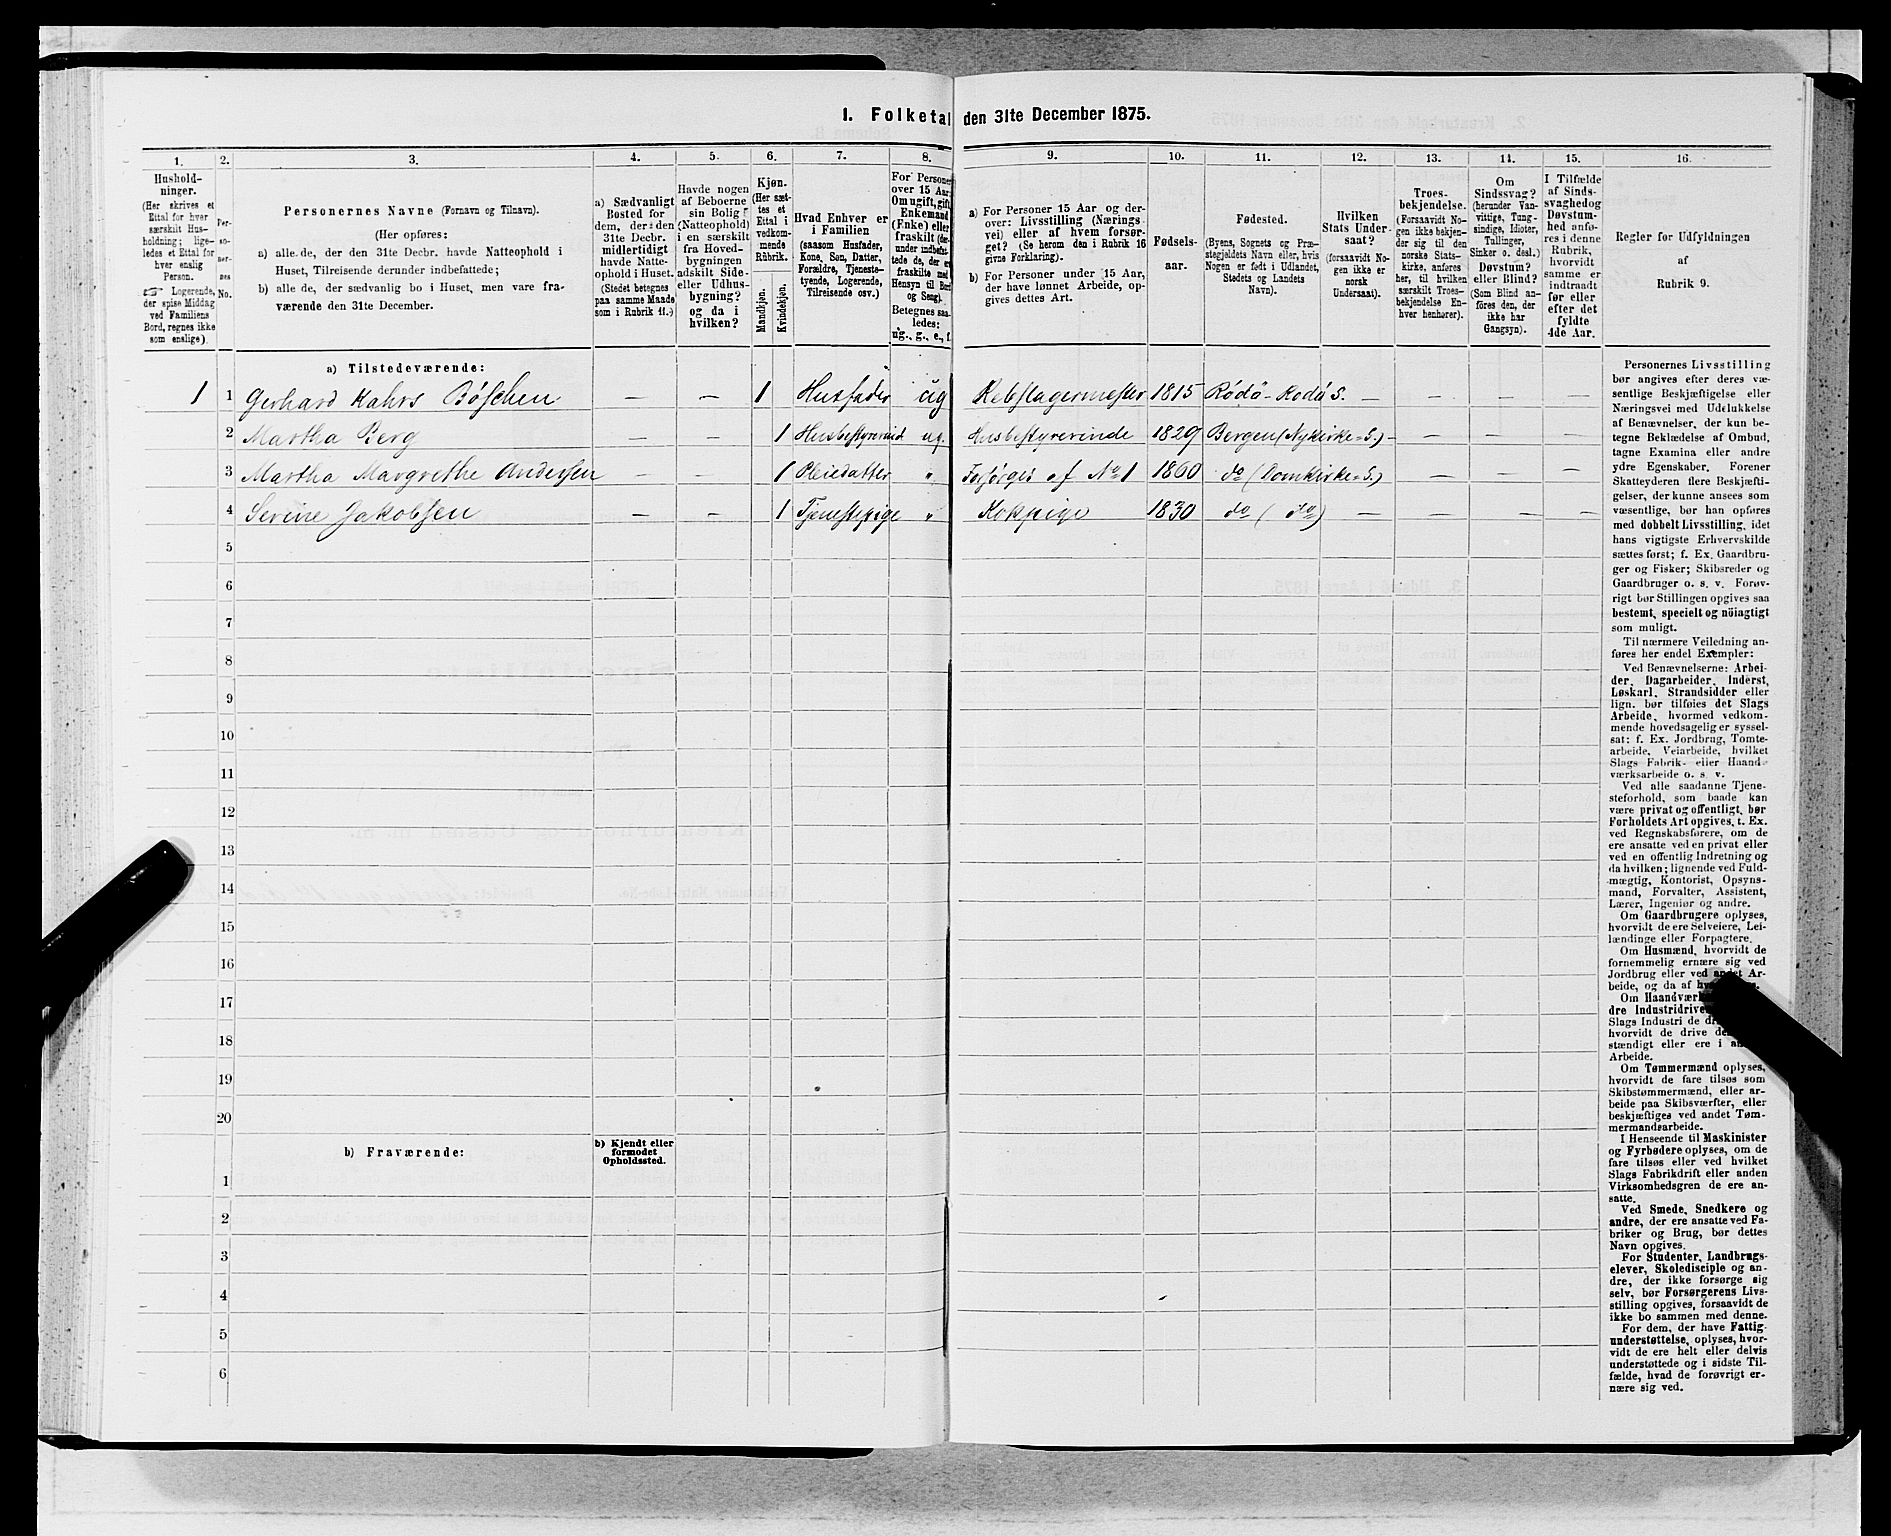 1. Folketal den 31te December 1875.
1. 2. 3. 4. 5. 6. 7. 8. 9. 10. 11. 12. 13. 14. 15. 16.
Hushold-
ninger.
(Her skrives et
Ettal for hver
særskilt Hus-
holdning; lige-
ledes et Ettal for
hver enslig
Person.
☞ Logerende,
der spise Middag
ved Familiens
Bord, regnes ikke
som enslige).
Per-
so-
ner-
nes
No.
Personernes Navne (Fornavn og Tilnavn).
(Her opføres:
a) alle de, der den 31te Decbr. havde Natteophold i
Huset, Tilreisende derunder indbefattede;
b) alle de, der sædvanlig bo i Huset, men vare fra-
værende den 31te December.
a) Sædvanligt
Bosted for
dem, der den
31te Decbr.
midlertidigt
havde Natte-
ophold i Huset.
(Stedet betegnes
paa samme Maade
som i Rubrik 11.)
Havde nogen
af Beboerne
sin Bolig
(Natteophold)
i en særskilt
fra Hoved-
bygningen
adskilt Side-
eller Udhus-
bygning?
og da i
hvilken?
Kjøn.
(Her sæt-
tes et
Ettal i
vedkom-
mende
Rubrik.
Mandkjøn.
Kvindekjøn.
Hvad Enhver er
i Familien
(saasom Husfader,
Kone, Søn, Datter,
Forældre, Tjeneste-
tyende, Logerende,
Tilreisende osv.)
For Personer
over 15 Aar:
Om ugift, gift,
Enkemand
(Enke) eller
fraskilt (der-
under indbefat-
tede de, der er
fraskilte med
Hensyn til Bord
og Seng).
Betegnes saa-
ledes:
ug., g., e., f.
a) For Personer 15 Aar og der-
over: Livsstilling (Nærings-
vei) eller af hvem forsør-
get? (Se herom den i Rubrik 16
givne Forklaring).
b) For Personer under 15 Aar,
der have lønnet Arbeide, op-
gives dettes Art.
Fødsels-
aar.
Fødested.
(Byens, Sognets og Præ-
stegjeldets Navn eller, hvis
Nogen er født i Udlandet,
Stedets og Landets
Navn).
Hvilken
Stats Under-
saat?
(forsaavidt No-
gen ikke er
norsk
Undersaat).
Troes-
bekjendelse.
(Forsaavidt No-
gen ikke bekjen-
der sig til den
norske Stats-
kirke, anføres
her, til hvilken
særskilt Troes-
bekjendelse En-
hver henhører).
Om
Sindssvag?
(herunder Van-
vittige, Tung-
sindige, Idioter,
Tullinger,
Sinker o. desl.)
Døvstum?
eller Blind?
(Som Blind an-
føres den, der
ikke har
Gangsyn).
I Tilfælde
af Sinds-
svaghed og
Døvstum-
hed anfø-
res i denne
Rubrik,
hvorvidt
samme er
indtraadt
før eller
efter det
fyldte
4de Aar.
Regler for Udfyldningen
af
Rubrik 9.
a) Tilstedeværende:
1 1 Gerhard Kahrs Böschen — — 1 Husfader ug Rebslagermester 1815 Rödö - Rodö S. — — — —
2 Martha Berg — — 1 Husbestyrerind ug. Husbestyrerinde 1829 Bergen (Nykirke=S.) — — — —
3 Martha Margrethe Andersen — — 1 Pleiedatter " Forsörges af No 1 1860 do (Domkirke=S.) — — —
4 Serine Jakobsen — — 1 Tjenestepige " Kokpige 1830 do (do) — — — —
5
6
7
8
9
10
11
12
13
14
15
16
17
18
19
20
b) Fraværende:
b) Kjendt eller
formodet
Opholdssted.
1
2
3
4
5
6
Personernes Livsstilling
bør angives efter deres væ-
sentlige Beskjæftigelse eller
Næringsvei med Udelukkelse
af Benævnelser, der kun be-
tegne Beklædelse af Ombud,
tagne Examina eller andre
ydre Egenskaber. Forener
Skatteyderen flere Beskjæfti-
gelser, der kunne ansees som
væsentlige, bør han opføres
med dobbelt Livsstilling, idet
hans vigtigste Erhvervskilde
sættes først; f. Ex. Gaardbru-
ger og Fisker; Skibsreder og
Gaardbruger o. s. v. Forøv-
rigt bør Stillingen opgives saa
bestemt, specielt og nöiagtigt
som muligt.
Til nærmere Veiledning an-
føres her endel Exempler:
Ved Benævnelserne: Arbei-
der, Dagarbeider, Inderst,
Løskarl, Strandsidder eller
lign. bør tilføies det Slags
Arbeide, hvormed vedkom-
mende hovedsagelig er syssel-
sat; f. Ex. Jordbrug, Tomte-
arbeide, Veiarbeide, hvilket
Slags Fabrik- eller Haand-
værksarbeide o. s. v.
Ved alle saadanne Tjene-
steforhold, som baade kan
være privat og offentligt, bør
Forholdets Art opgives, t. Ex.
ved Regnskabsførere, om de
ere ansatte ved en privat eller
ved en offentlig Indretning og
da hvilken; lignende ved Fuld-
mægtig, Kontorist, Opsyns-
mand, Forvalter, Assistent,
Lærer, Ingeniør og andre.
Om Gaardbrugere oplyses,
hvorvidt de ere Selveiere, Lei-
lændinge eller Forpagtere.
Om Husmænd, hvorvidt de
fornemmelig ernære sig ved
Jordbrug eller ved andet Ar-
beide, og da af
Om Haandværk
dre Industridrive
Slags Industri de dr
hvorvidt de drive de
stændigt eller ere i an
Arbeide.
Om Tømmermænd oplyses,
hvorvidt de fare tilsøs som
Skibstømmermænd, eller ar-
beide paa Skibsværfter, eller
beskjæftiges ved andet Tøm-
mermandsarbeide.
I Henseende til Maskinister
og Fyrbødere oplyses, om de
fare tilsøs eller ved hvilket
Slags Fabrikdrift eller anden
Virksomhedsgren de ere an-
satte.
Ved Smede, Snedkere og
andre, der ere ansatte ved Fa-
briker og Brug, bør dettes
Navn opgives.
For Studenter, Landbrugs-
elever, Skoledisciple og an-
dre, der ikke forsørge sig
selv, bør Forsørgerens Livs-
stilling opgives, forsaavidt de
ikke bo sammen med denne.
For dem, der have Fattig-
understøttelse, oplyses, hvor-
vidt de ere helt eller delvis
understøttede og i sidste Til-
fælde, hvad de forøvrigt er-
nære sig ved.